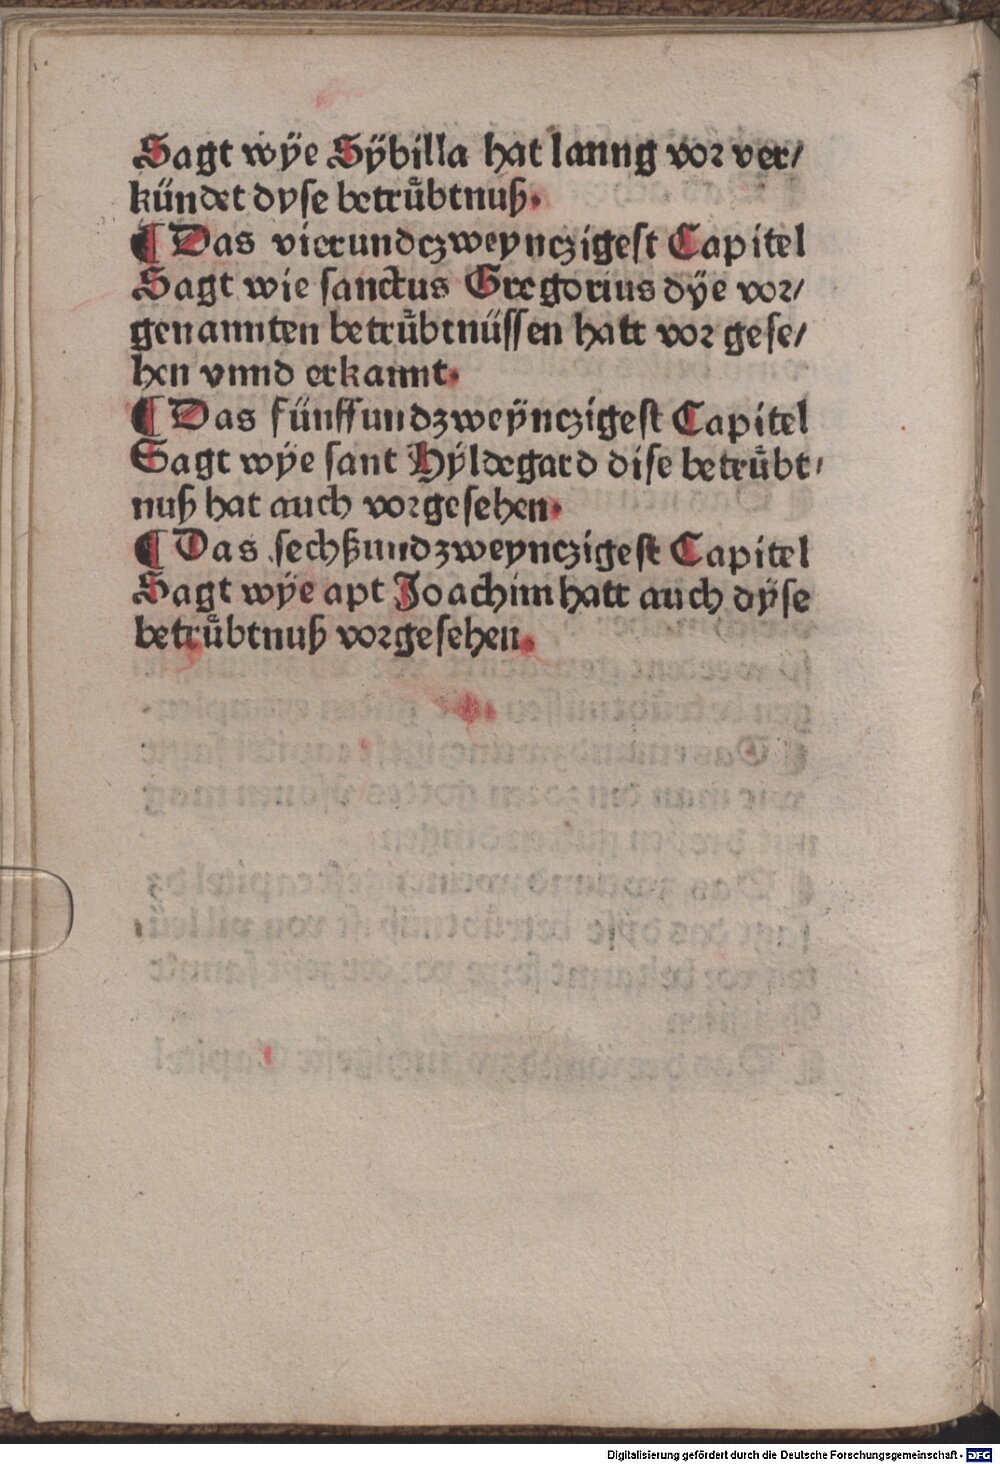 Sagt wÿe Sÿbilla hat lanng vor ver/
kündet dyse betrůbtnuß.
¶ Das vierundczweynczigest Capitel
Sagt wie sanctus Gregorius dÿe vor/
genannten betrůbtnüssen hatt vor gese/
hen vnnd erkannt.
¶ Das fünffundzweÿnczigest Capitel
Sagt wÿe sant Hÿldegard dise betrůbt/
nuß hat auch vorgesehen.
¶ Das sechßundzweynczigest Capitel
Sagt wÿe apt Joachim hatt auch dÿse
betrůbtnuß vorgesehen.
Digitalisierung gefördert durch die Deutsche Forschungsgemeinschaft - DFG